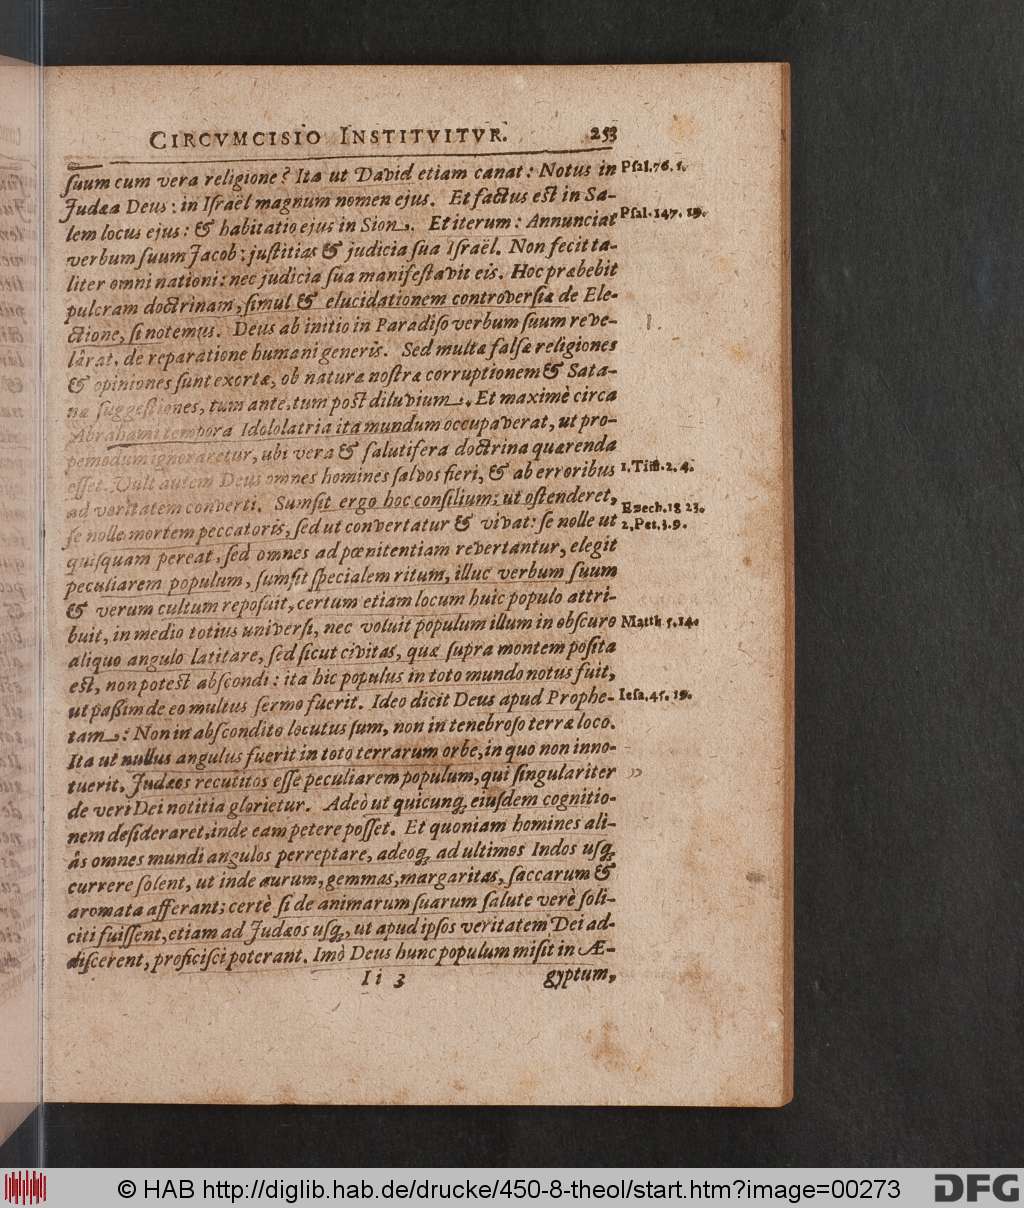 CIRCVMCISIO INSTITVITVR. 253
ſuum cum vera religione? Ita ut David etiam canat: Notus in
Judæa Deus: in Iſraël magnum nomen ejus. Et factus est in Sa-
lem locus ejus: & habitatio ejus in Sion. Et iterum: Annunciat
verbum ſuum Jacob: juſtitias & judicia ſua Iſraël. Non fecit ta-
liter omni nationi: nec judicia ſua manifeſtavit eis. Hoc præbebit
pulcram doctrinam, ſimul & elucidationem controverſiæ de Ele-
ctione, ſi notemus. Deus ab initio in Paradiſo verbum ſuum reve-
lârat, de reparatione humani generis. Sed multa falſæ religiones
& opiniones ſunt exortæ, ob naturæ noſtræ corruptionem & Sata-
næ ſuggeſtiones, tum ante, tum poſt diluvium. Et maximè circa
Abrahami tempora Idololatria ita mundum occupaverat, ut pro-
pemodum ignoraretur, ubi vera & ſalutifera doctrina quærenda
eſſet. Vult autem Deus omnes homines ſalvos fieri, & ab erroribus
ad veritatem converti. Sumſit ergo hoc conſilium: ut oſtenderet,
ſe nolle mortem peccatoris, ſed ut convertatur & vivat: ſe nolle ut
quiſquam pereat, ſed omnes ad pœnitentiam revertantur, elegit
peculiarem populum, ſumſit ſpecialem ritum, illuc verbum ſuum
& verum cultum repoſuit, certum etiam locum huic populo attri-
buit, in medio totius univerſi, nec voluit populum illum in obſcuro
aliquo angulo latitare, ſed ſicut civitas, quæ ſupra montem poſita
est, non poteſt abſcondi: ita hic populus in toto mundo notus fuit,
ut paßim de eo multus ſermo fuerit. Ideo dicit Deus apud Prophe-
tam: Non in abſcondito locutus ſum, non in tenebroſo terræ loco.
Ita ut nullus angulus fuerit in toto terrarum orbe, in quo non inno-
tuerit, Judæos recutitos eſſe peculiarem populum, qui ſingulariter
de veri Dei notitia glorietur. Adeò ut quicunq; eiuſdem cognitio-
nem deſideraret, inde eam petere poſſet. Et quoniam homines ali-
âs omnes mundi angulos perreptare, adeoq; ad ultimos Indos uſq;
currere ſolent, ut inde aurum, gemmas, margaritas, ſaccarum &
aromata afferant; certè ſi de animarum ſuarum ſalute verè ſoli-
citi fuiſſent, etiam ad Judæos uſq;, ut apud ipſos veritatem Dei ad-
diſcerent, proficiſci poterant. Imò Deus hunc populum miſit in Æ-
Ii 3 gyptum,
Pſal. 76. 1.
Pſal. 147. 19.
1. Tim. 2. 4.
Ezech. 18 23.
2. Pet. 3. 9.
Matth 5. 14.
Ieſa. 45. 19.
© HAB http://diglib.hab.de/drucke/450-8-theol/start.htm?image=00273
DFG